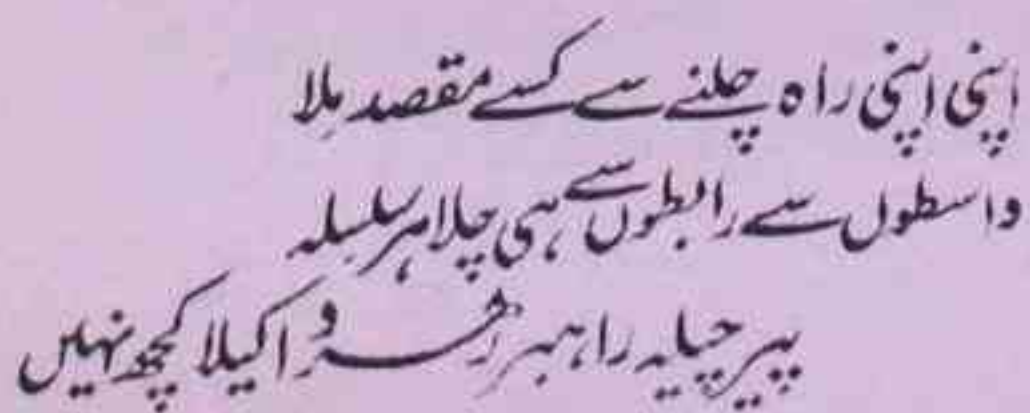 اپنی اپنی راہ چلنے سے کسے مقصد ملا
واسطوں سے رابطوں سے ہی چلا ہر سلسلہ
پیر چیلہ راہبر رہرو اکیلا کچھ نہیں